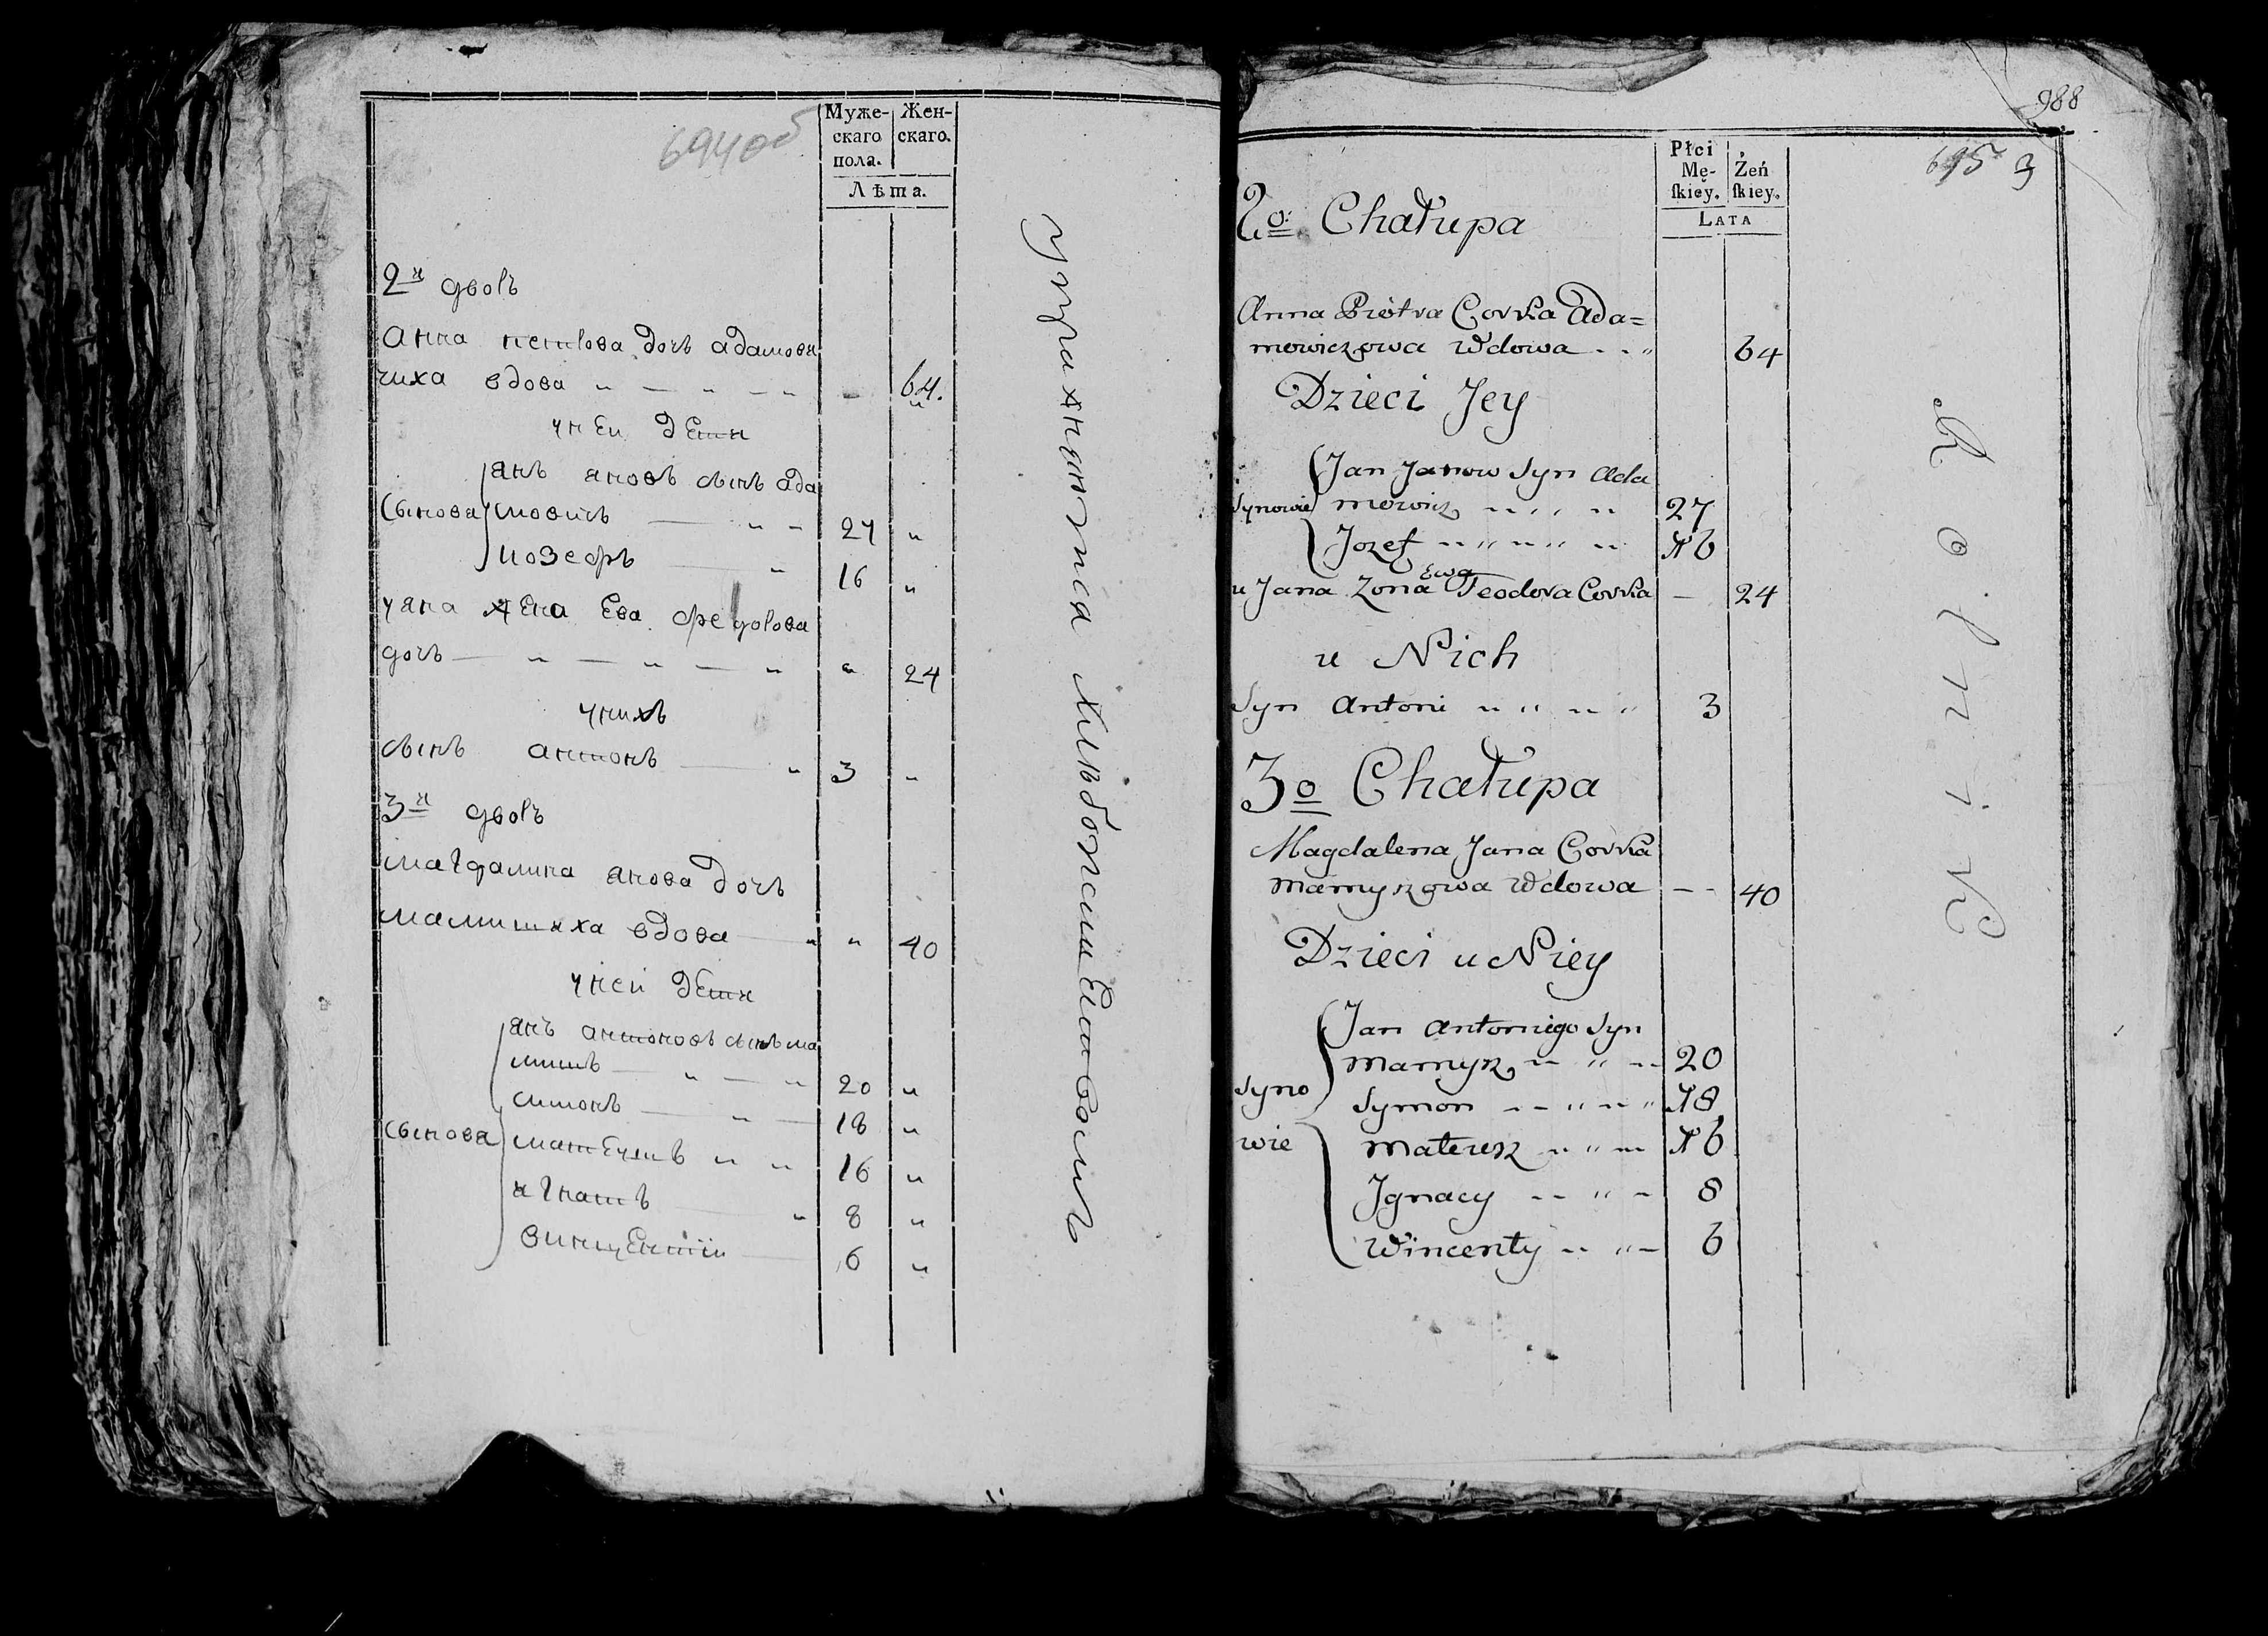 694об
Муже-
скаго
пола.
Жен-
скаго.
Лѣта.
2й дворъ
Анна петрова дочъ адамови
чиха вдова " — " — " - 64.
у ней дети
Сынова янъ яновъ сынъ ада
мовичъ — " — 27 "
иозефъ — " 16 "
у яна жена Ева федорова
дочъ — " — " — " " 24
у нихъ
сынъ антонъ — " 3 "
3й дворъ
магдалина янова дочъ
мамишиха вдова — " " 40
у ней дети
янъ антоновъ сынъ ма
мишъ — " — " 20 "
симонъ — " — 18 "
Сынова матеушъ " " 16 "
игнатъ — " 8 "
винцентiи — 6 "
упражняются хлебопашеством
988
695 9
Płci
Mę-
ſkiey.
Żeń
ſkiey.
LATA
2o: Chałupa
Anna Piotra Corka Ada=
mowiczowa Wdowa - - " 64
Dzieci Jey
Synowie Jan Janow Syn Ada
mowicz " " " 27
Jozef " " " " " 16
u Jana Zona Ewa Teodora Corka — 24
u Nich
Syn Antoni " " " " 3
3o Chałupa
Magdalena Jana Corka
Mamyszowa Wdowa - - 40
Dzieci u Niey
Jan Antoniego Syn
Mamysz " " - - 20
Syno Symon - - " " " 18
wie Mateusz " " " 16
Jgnacy - - " - 8
Wincenty " " - 6
Rolnik